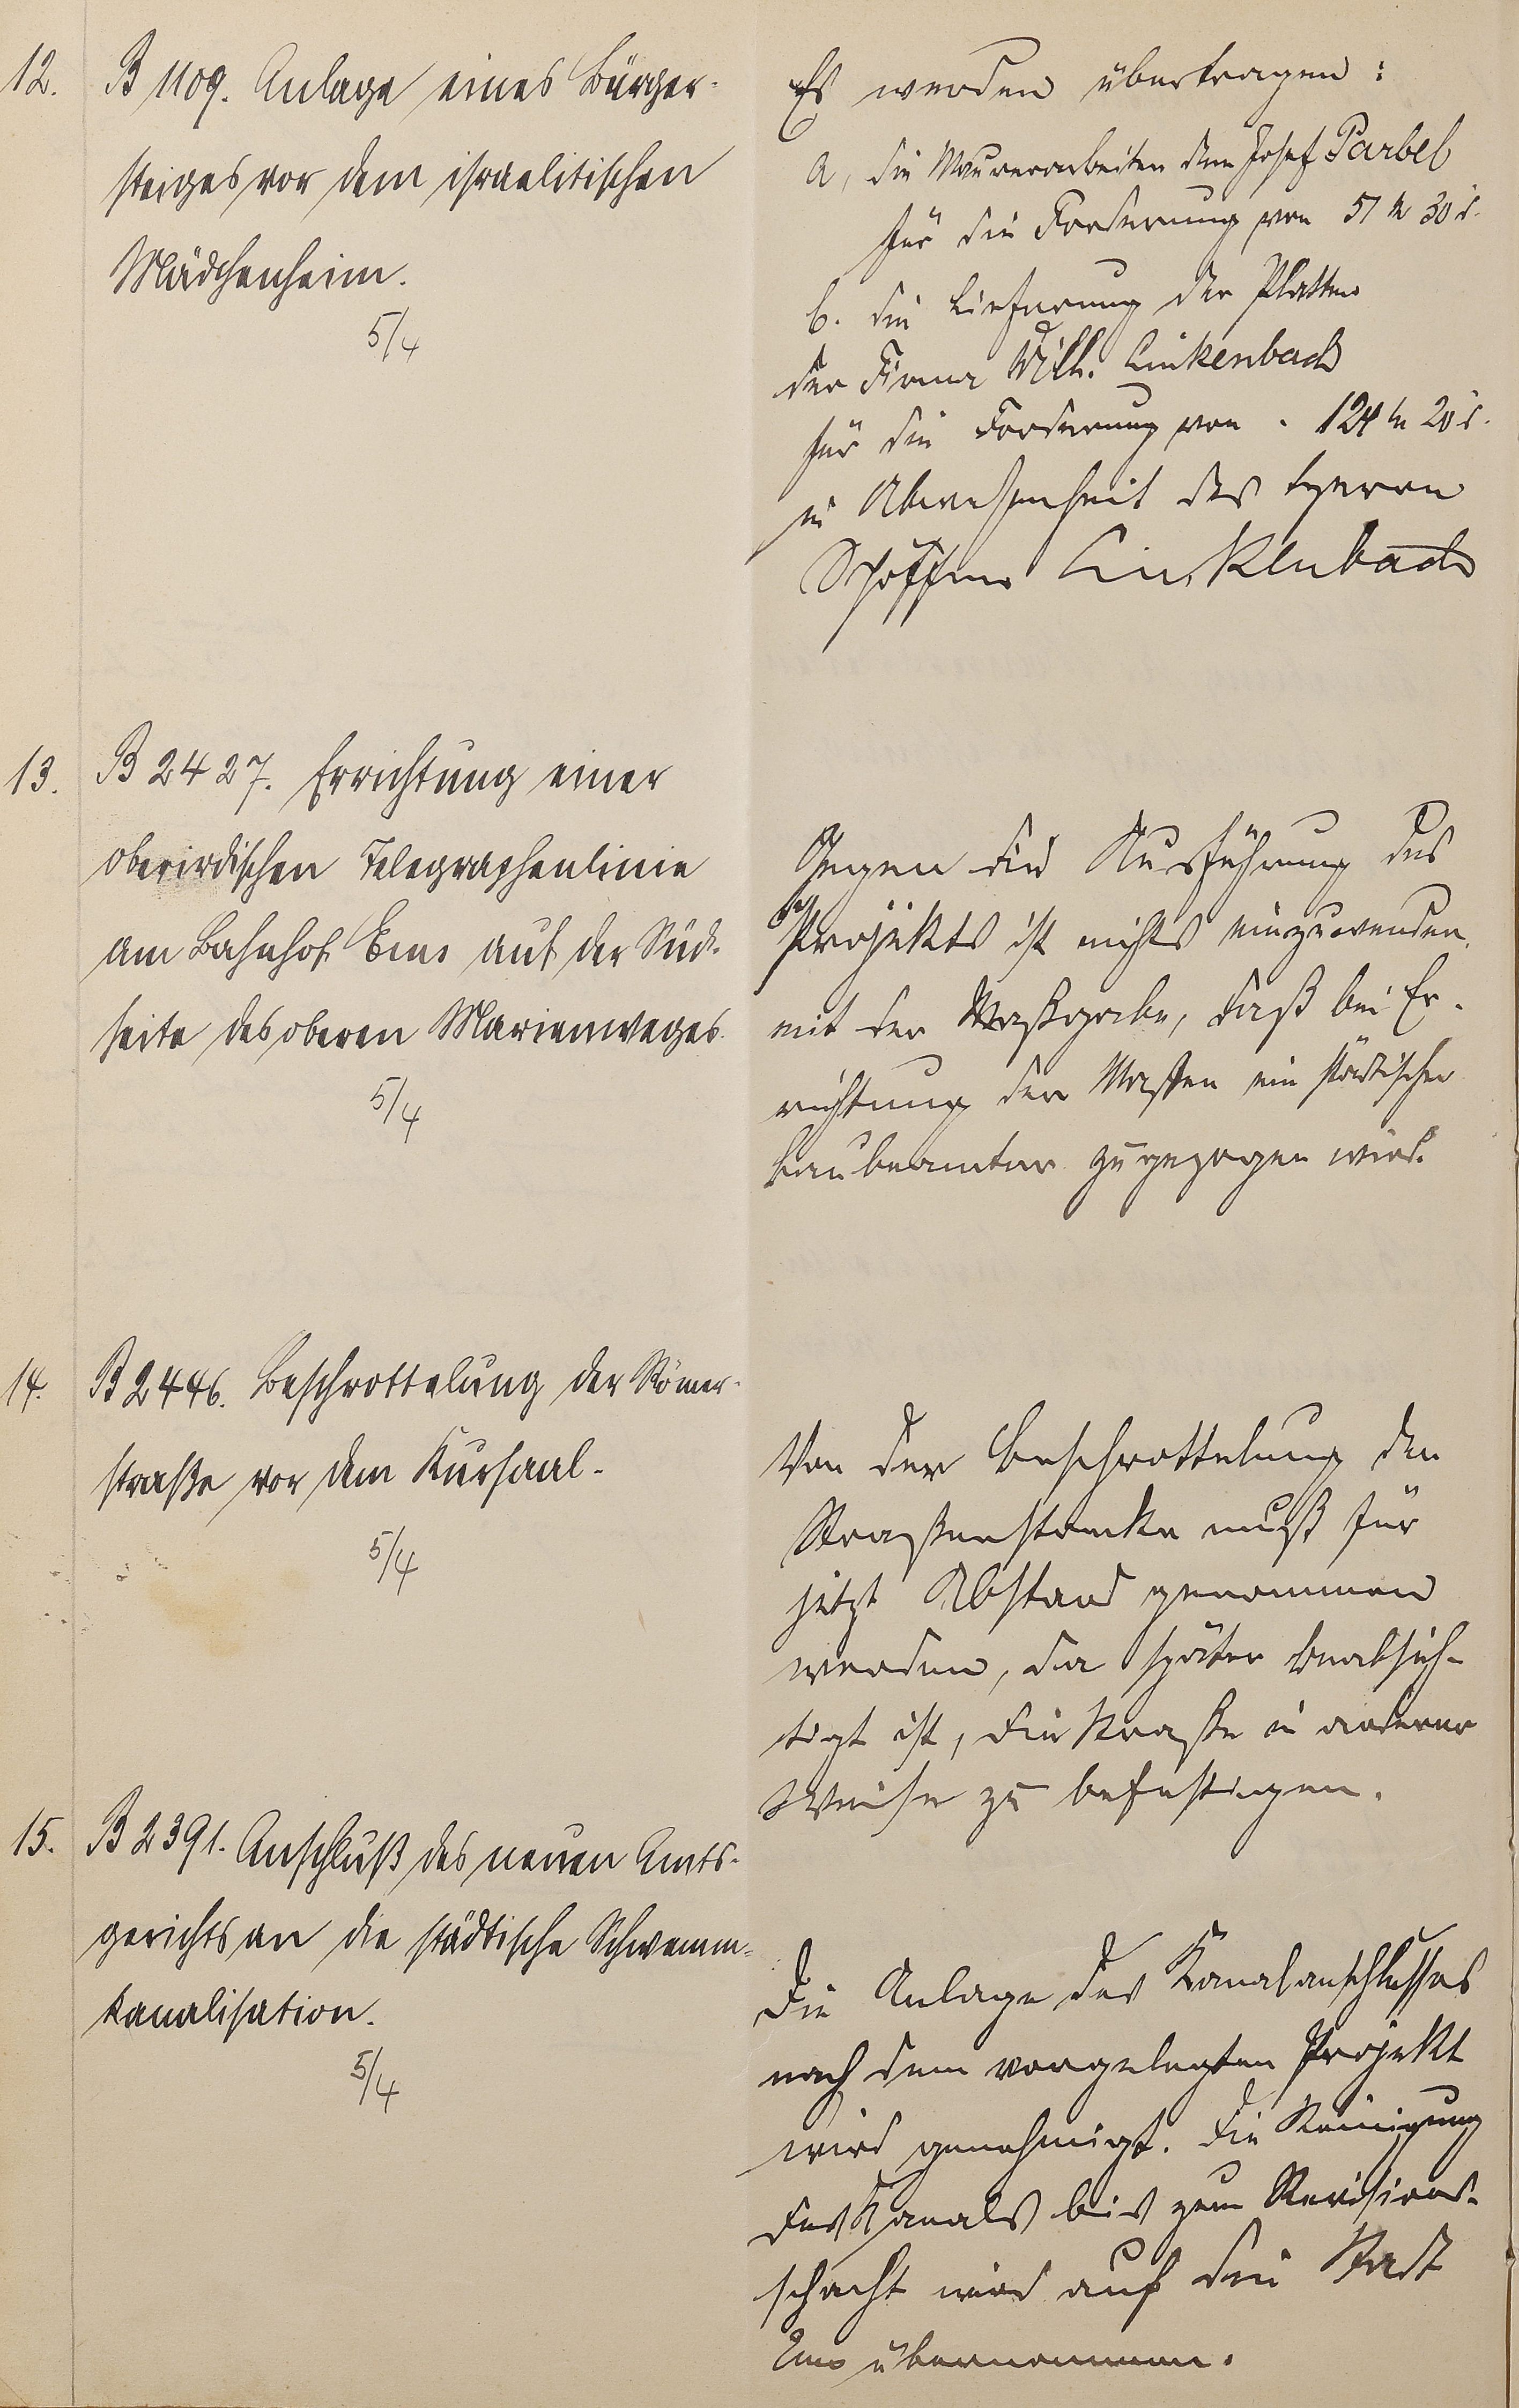 12. B 1109. Anlage eines Bürger-
steiges vor dem israelitischen
Mädchenheim.
5/4
Es werden übertragen:
a, die Maurerarbeiten dem Josef Parbel
für die Forderung von 57 M 30 d.
b. die Lieferung der Platten
der Firma Wilh. Linkenbach
für die Forderung von . 124 M 20 d.
in Abwesenheit des Herrn
Schöffen Linkenbach
13. B 2427. Errichtung einer
oberirdischen Telegraphenlinie
am Bahnhof Ems auf der Süd-
seite des oberen Marienweges.
5/4
Gegen die Ausführung des
Projekts ist nichts einzuwenden
mit der Maßgabe, daß bei Er-
richtung der Masten ein städtischer
Baubeamter zugezogen wird.
14. B 2446. Beschrottelung der Römer-
straße vor dem Kursaal.
5/4
Von der Beschrottelung der
Straßenstrecke muß für
jetzt Abstand genommen
werden, da später beabsich-
tigt ist, die Straße in anderer
Weise zu befestigen.
15. B 2391. Anschluß des neuen Amts-
gerichts an die städtische Schwemm-
kanalisation.
5/4
Die Anlage des Kanalanschlusses
nach dem vorgelegten Projekt
wird genehmigt. Die Reinigung
des Kanals bis zum Revisions-
schacht wird auf die Stadt
Ems übernommen.